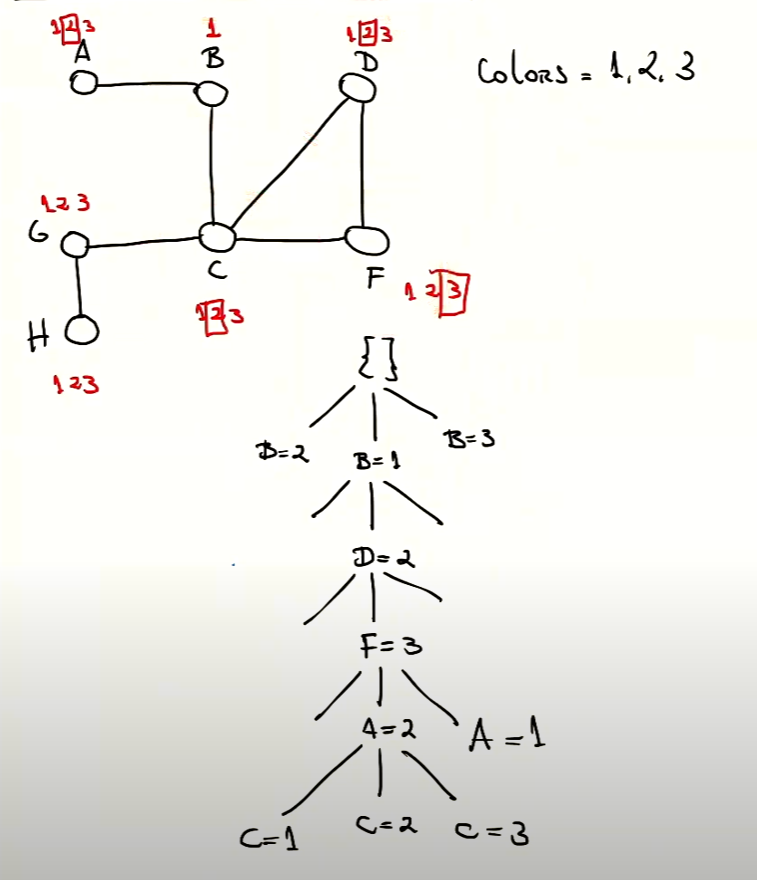 1 2 3
A
1
B
1 2 3
D
Colors = 1, 2, 3
1 2 3
G
C
F
1 2 3
1 2 3
H
1 2 3
{ }
B=2
B=1
B=3
D=2
F=3
A=2
A=1
C=1
C=2
C=3